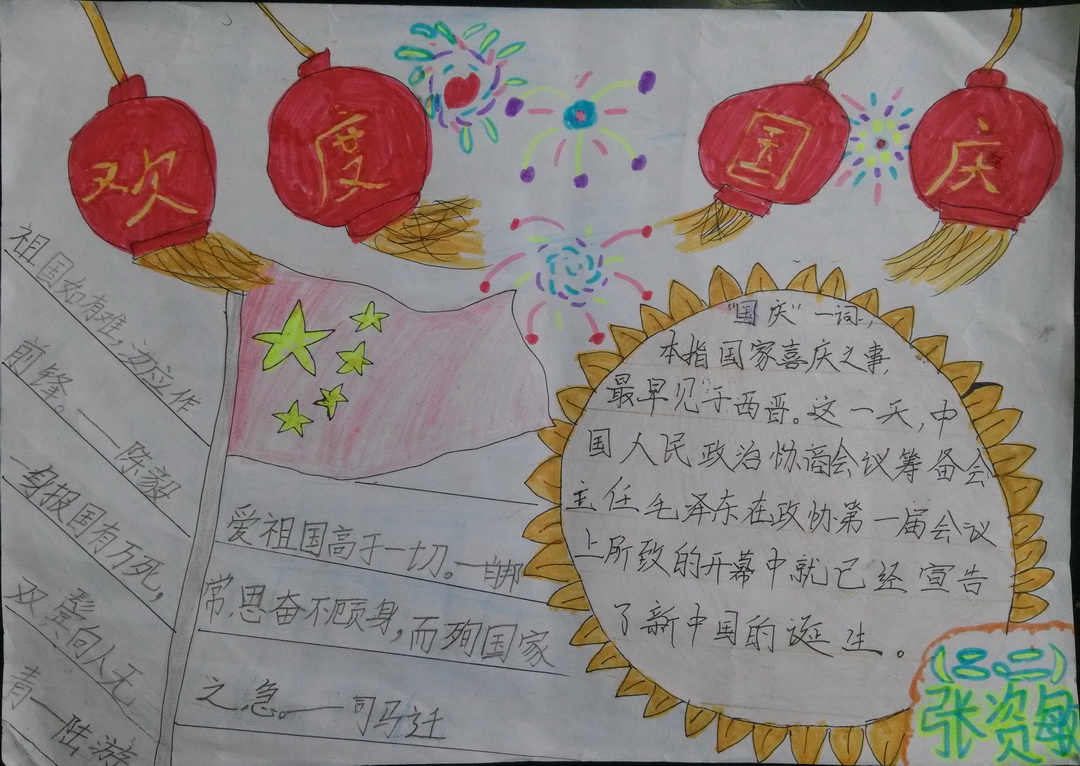 欢度国庆
祖国如有难，汝应作
前锋。——陈毅
一身报国有万死，
双鬓向人无
青—陆游
爱祖国高于一切。—肖邦
常思奋不顾身，而殉国家
之急。——司马迁
"国庆"一词，
本指国家喜庆之事，
最早见于西晋。这一天，中
国人民政治协商会议筹备会
主任毛泽东在政协第一届会议
上所致的开幕中就已经宣告
了新中国的诞生。
张资敏